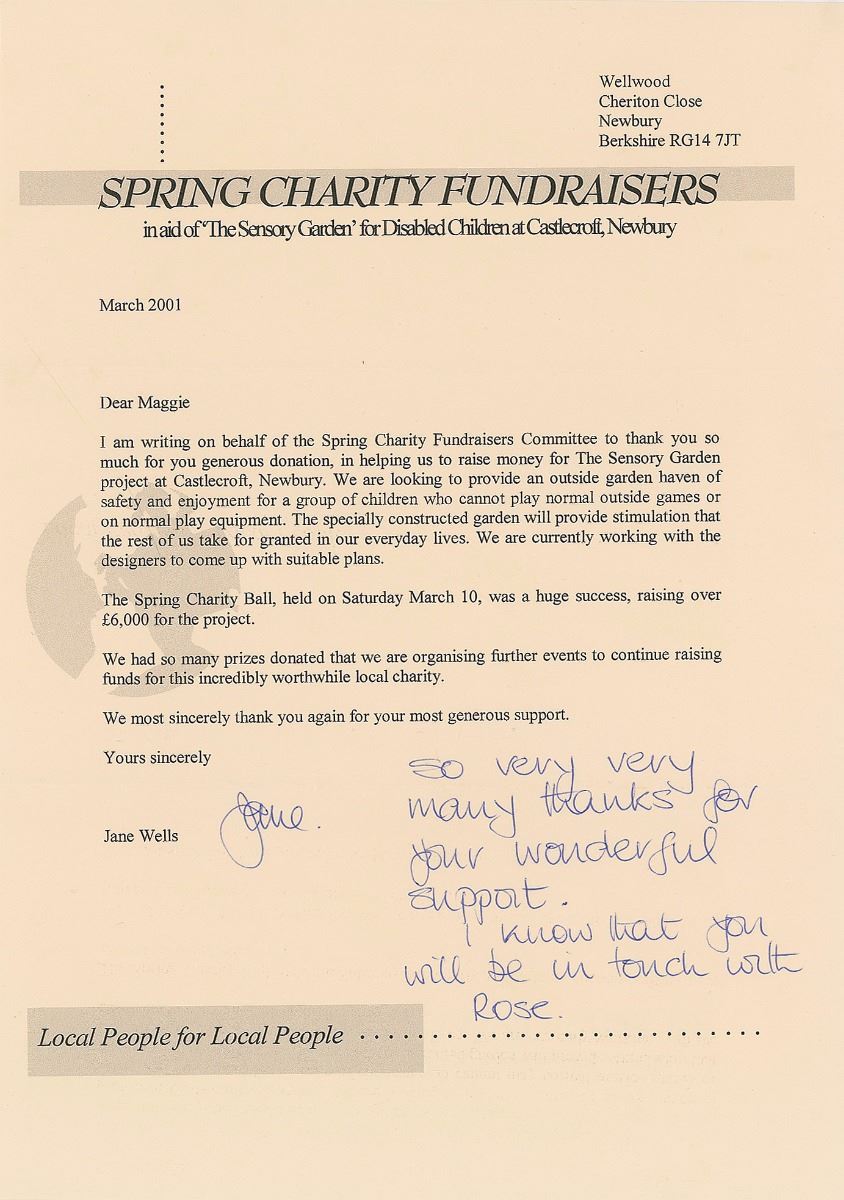 Wellwood
Cheriton Close
Newbury
Berkshire RG14 7JT
SPRING CHARITY FUNDRAISERS
in aid of 'The Sensory Garden' for Disabled Children at Castlecroft, Newbury
March 2001
Dear Maggie
I am writing on behalf of the Spring Charity Fundraisers Committee to thank you so
much for you generous donation, in helping us to raise money for The Sensory Garden
project at Castlecroft, Newbury. We are looking to provide an outside garden haven of
safety and enjoyment for a group of children who cannot play normal outside games or
on normal play equipment. The specially constructed garden will provide stimulation that
the rest of us take for granted in our everyday lives. We are currently working with the
designers to come up with suitable plans.
The Spring Charity Ball, held on Saturday March 10, was a huge success, raising over
£6,000 for the project.
We had so many prizes donated that we are organising further events to continue raising
funds for this incredibly worthwhile local charity.
We most sincerely thank you again for your most generous support.
Yours sincerely
Jane.
Jane Wells
So very very
many thanks for
your wonderful
support.
I know that you
will be in touch with
Rose.
Local People for Local People